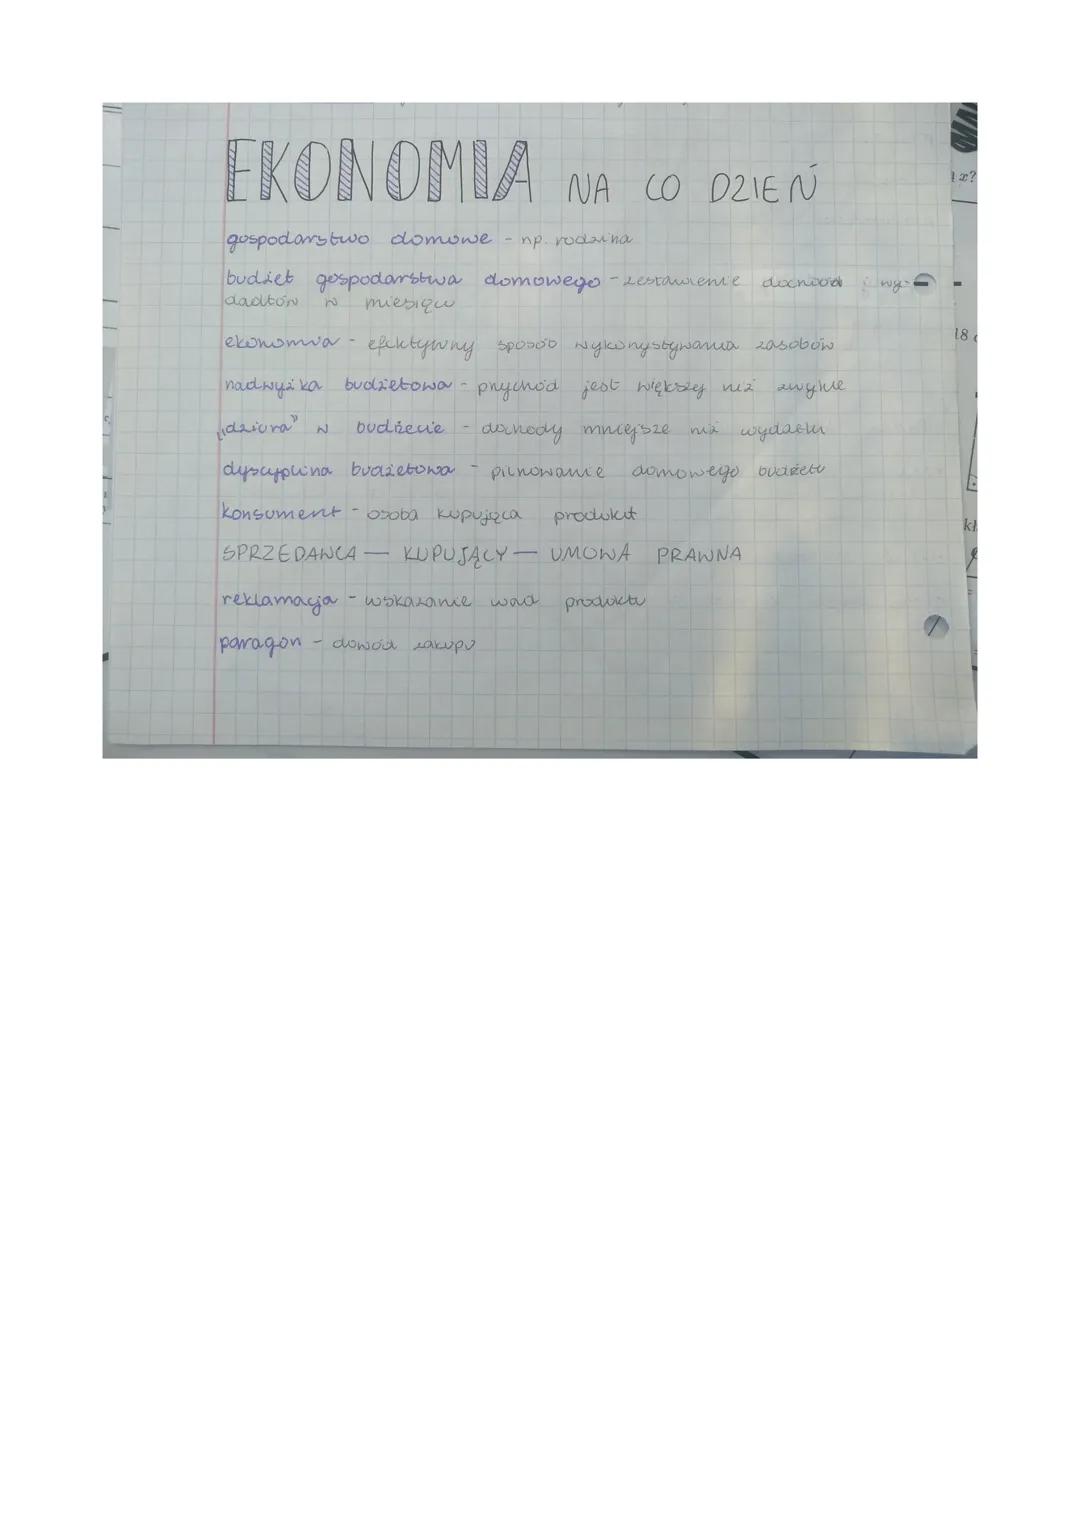 EKONOMIA NA CO DZIEŃ
gospodarstwo domowe - np. rodzina
budżet gospodarstwa domowego - zestawienie dochodów i wy-
datków w miesiącu
ekonomia - efektywny sposób wykorzystywania zasobów
nadwyżka budżetowa - przychód jest większy niż zwykle
„dziura" w budżecie - dochody mniejsze niż wydatki
dyscyplina budżetowa - pilnowanie domowego budżetu
konsument - osoba kupująca produkt
SPRZEDAWCA — KUPUJĄCY — UMOWA PRAWNA
reklamacja - wskazanie wad produktu
paragon - dowód zakupu